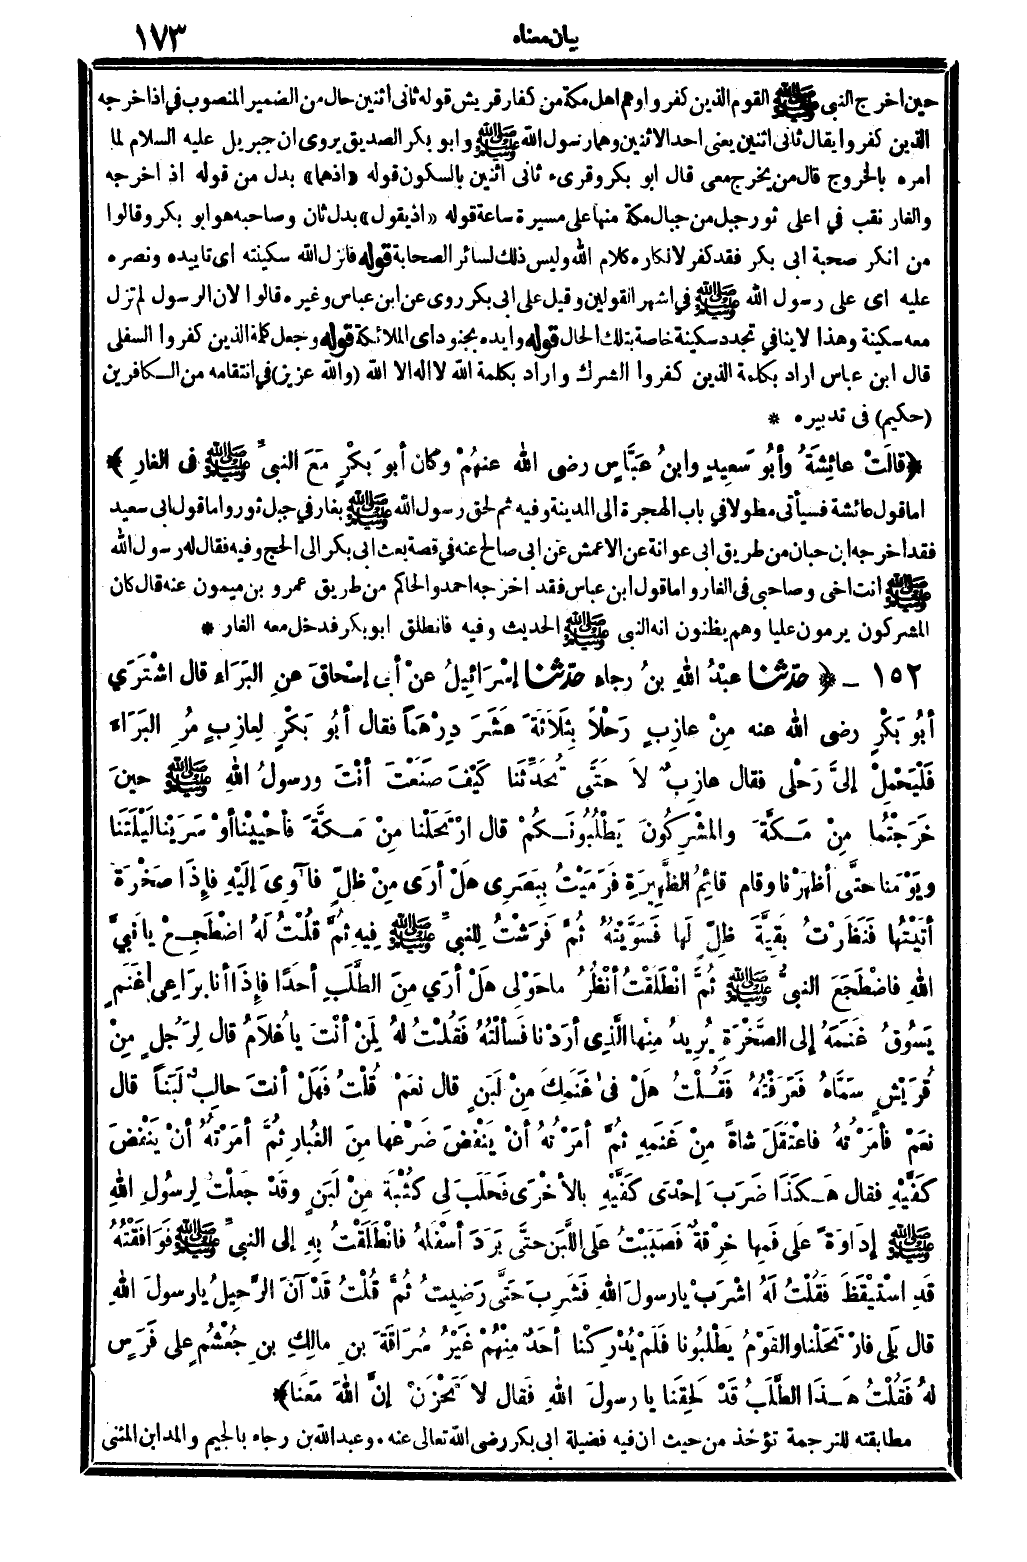 بيان معناه
١٧٣
حين اخرج النبي ﷺ القوم الذين كفروا وهم اهل مكة من كفار قريش قوله ثاني اثنين حال من الضمير المنصوب في اذ اخرجه
الذين كفروا يقال ثاني اثنين يعني احد الاثنين وهما رسول الله ﷺ وابو بكر الصديق يروى ان جبريل عليه السلام لما
امره بالخروج قال من يخرج معي قال ابو بكر وقرىء ثاني اثنين بالسكون قوله «اذهما» بدل من قوله اذ اخرجه
والغار نقب في اعلى ثور جبل من جبال مكة منها على مسيرة ساعة قوله «اذ يقول» بدل ثان وصاحبه هو ابو بكر وقالوا
من انكر صحبة ابي بكر فقد كفر لانكاره كلام الله وليس ذلك لسائر الصحابة قوله فانزل الله سكينته اى تاييده ونصره
عليه اى على رسول الله ﷺ في اشهر القولين وقيل على ابى بكر روى عن ابن عباس وغيره قالوا لان الرسول لم تزل
معه سكينة وهذا لا ينافي تجدد سكينة خاصة بتلك الحال قوله وايده بجنود اى الملائكة قوله وجعل كلمة الذين كفروا السفلى
قال ابن عباس اراد بكلمة الذين كفروا الشرك واراد بكلمة الله لا اله الا الله (والله عزيز) في انتقامه من الكافرين
(حكيم) فى تدبيره *
﴿قالَتْ عائِشَةُ وأبُو سَعِيدٍ وابنُ عَبَّاسٍ رضى الله عنهُمْ وكان أبو بَكْرٍ مَعَ النبيِّ ﷺ فى الغارِ﴾
اما قول عائشة فسيأتى مطولا في باب الهجرة الى المدينة وفيه ثم لحق رسول الله ﷺ بغار في جبل ثور واما قول ابى سعيد
فقد اخرجه ابن حبان من طريق ابى عوانة عن الاعمش عن ابى صالح عنه في قصة بعث ابى بكر الى الحج وفيه فقال له رسول الله
ﷺ انت اخى وصاحبى فى الغار واما قول ابن عباس فقد اخرجه احمد والحاكم من طريق عمرو بن ميمون عنه قال كان
المشركون يرمون عليا وهم يظنون انه النبى ﷺ الحديث وفيه فانطلق ابو بكر فدخل معه الغار *
١٥٢ ـ ﴿حدّثنا عبْدُ اللهِ بنُ رجاء حدّثنا إسْرَائِيلُ عنْ أبى إسْحاقَ عنِ البَرَاءِ قال اشْتَرَي
أبُو بَكْرٍ رضى الله عنه مِنْ عازِبٍ رَحْلاً بِثَلاَثَةَ عَشَرَ دِرْهَماً فقال أبُو بَكْرٍ لِعازِبٍ مُرِ البَرَاءَ
فَلْيَحْمِلْ إلىَّ رَحْلى فقال عازِبٌ لاَ حَتَّى تُحَدِّثَنا كَيْفَ صَنَعْتَ أنْتَ ورسولُ اللهِ ﷺ حينَ
خَرَجْتُما مِنْ مَكَّةَ والمشْرِكُونَ يَطْلُبُونَكُمْ قال ارْتَحَلْنا مِنْ مَكَّةَ فأحْيَيْنا أوْ سَرَيْنا لَيْلَتَنا
ويَوْمَنا حتَّى أظهَرْنا وقام قائِمُ الظَّهِيرَةِ فَرَمَيْتُ بِبَصَرِى هلْ أرَى مِنْ ظلٍّ فآوِىَ إلَيْهِ فإذَا صَخْرَةٌ
أتيْتُها فَنَظَرْتُ بَقِيَّةَ ظلٍّ لَها فَسَوَّيْتهُ ثُمَّ فَرَشْتُ لِلنبيِّ ﷺ فِيهِ ثُمَّ قُلْتُ لَهُ اضْطَجِعْ يا نَبيَّ
اللهِ فاضْطَجَعَ النبىُّ ﷺ ثُمَّ انْطَلَقْتُ أنْظُرُ ما حَوْلى هَلْ أرَي مِنَ الطَّلَبِ أحَدًا فإذَا أنا بِرَاعِى غَنَمٍ
يَسُوقُ غَنَمَهُ إلى الصَّخْرَةِ يُرِيدُ مِنْها الَّذِى أرَدْنا فَسألْتُهُ فَقُلْتُ لهُ لِمَنْ أنْتَ يا غُلاَمُ قال لِرَجُلٍ مِنْ
قُرَيْشٍ سَمَّاهُ فَعَرَفْتُهُ فَقُلْتُ هَلْ فى غَنَمِكَ مِنْ لَبَنٍ قال نعَمْ قُلْتُ فَهَلْ أنتَ حالِبٌ لَبَناً قال
نعَمْ فأمَرْتُهُ فاعْتَقَلَ شاةً مِنْ غَنَمِهِ ثُمَّ أمَرْتُهُ أنْ يَنْفُضَ ضَرْعَها مِنَ الغُبارِ ثُمَّ أمَرْتُهُ أنْ يَنْفُضَ
كَفَّيْهِ فقال هَكَذَا ضَرَبَ إحْدَى كَفَّيْهِ بالأخْرَى فَحلَبَ لِى كُثْبَةً مِنْ لَبَنٍ وقَدْ جَعَلْتُ لِرسُولِ اللهِ
ﷺ إدَاوَةً عَلى فَمِها خِرْقَةٌ فَصَبَبْتُ عَلى اللَّبَنِ حتَّى بَرَدَ أسْفَلهُ فانْطَلَقْتُ بِهِ إلى النبيِّ ﷺ فَوَافَقْتُهُ
قَدِ اسْتَيْقَظَ فَقُلْتُ لَهُ اشْرَبْ يا رسولَ اللهِ فَشَرِبَ حَتَّى رَضِيتُ ثُمَّ قُلْتُ قَدْ آنَ الرَّحِيلُ يا رسولَ اللهِ
قال بَلى فارْتَحَلْنا والقَوْمُ يَطْلبُونا فَلَمْ يُدْرِكْنا أحَدٌ مِنْهُمْ غَيْرُ سُرَاقَةَ بنِ مالِكِ بنِ جُعْشُمٍ على فَرَسٍ
لهُ فَقُلْتُ هَذا الطَّلَبُ قَدْ لَحِقَنا يا رسولَ اللهِ فَقال لاَ تَحْزَنْ إنَّ اللهَ مَعَنا﴾
مطابقته للترجمة تؤخذ من حيث ان فيه فضيلة ابى بكر رضى الله تعالى عنه * وعبد الله بن رجاء بالجيم والمد ابن المثنى